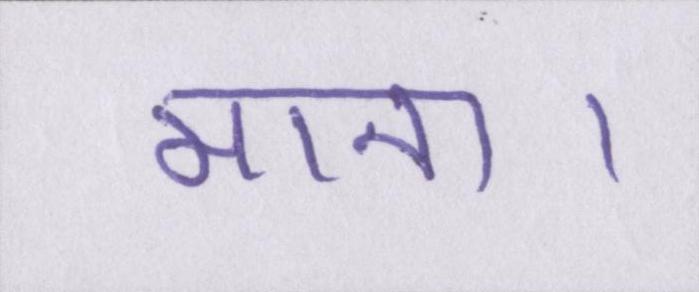 माना ।